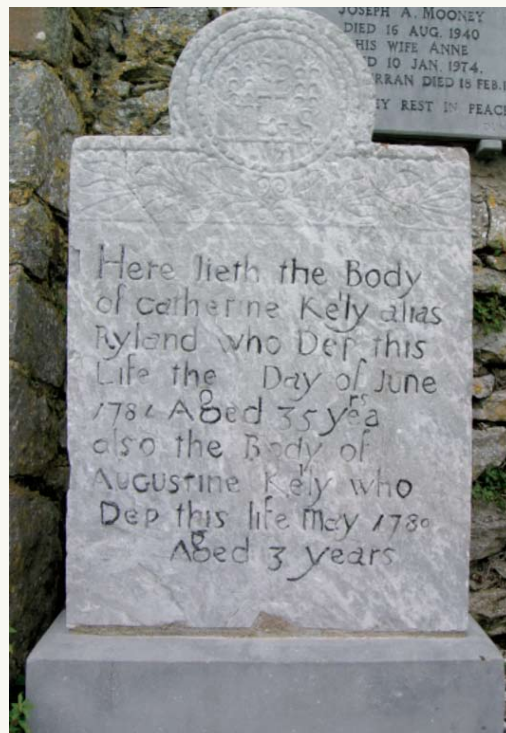 JOSEPH A. MOONEY
DIED 16 AUG. 1940
HIS WIFE ANNE
10 JAN. 1974.
DIED 18 FEB.
REST IN PEACE
IHS
Here lieth the Body
of Catherine Kelly alias
Ryland who Dep this
Life the Day of June
1781 Aged 35 years
also the Body of
Augustine Kelly who
Dep this life May 1780
Aged 3 years